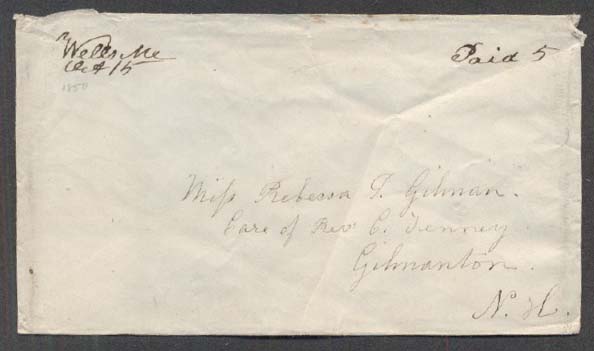 Wells Me
Oct 15
1850
Paid 5
Miss Rebecca I. Gilman.
Care of Rev. C. Tenney
Gilmanton.
N. H.